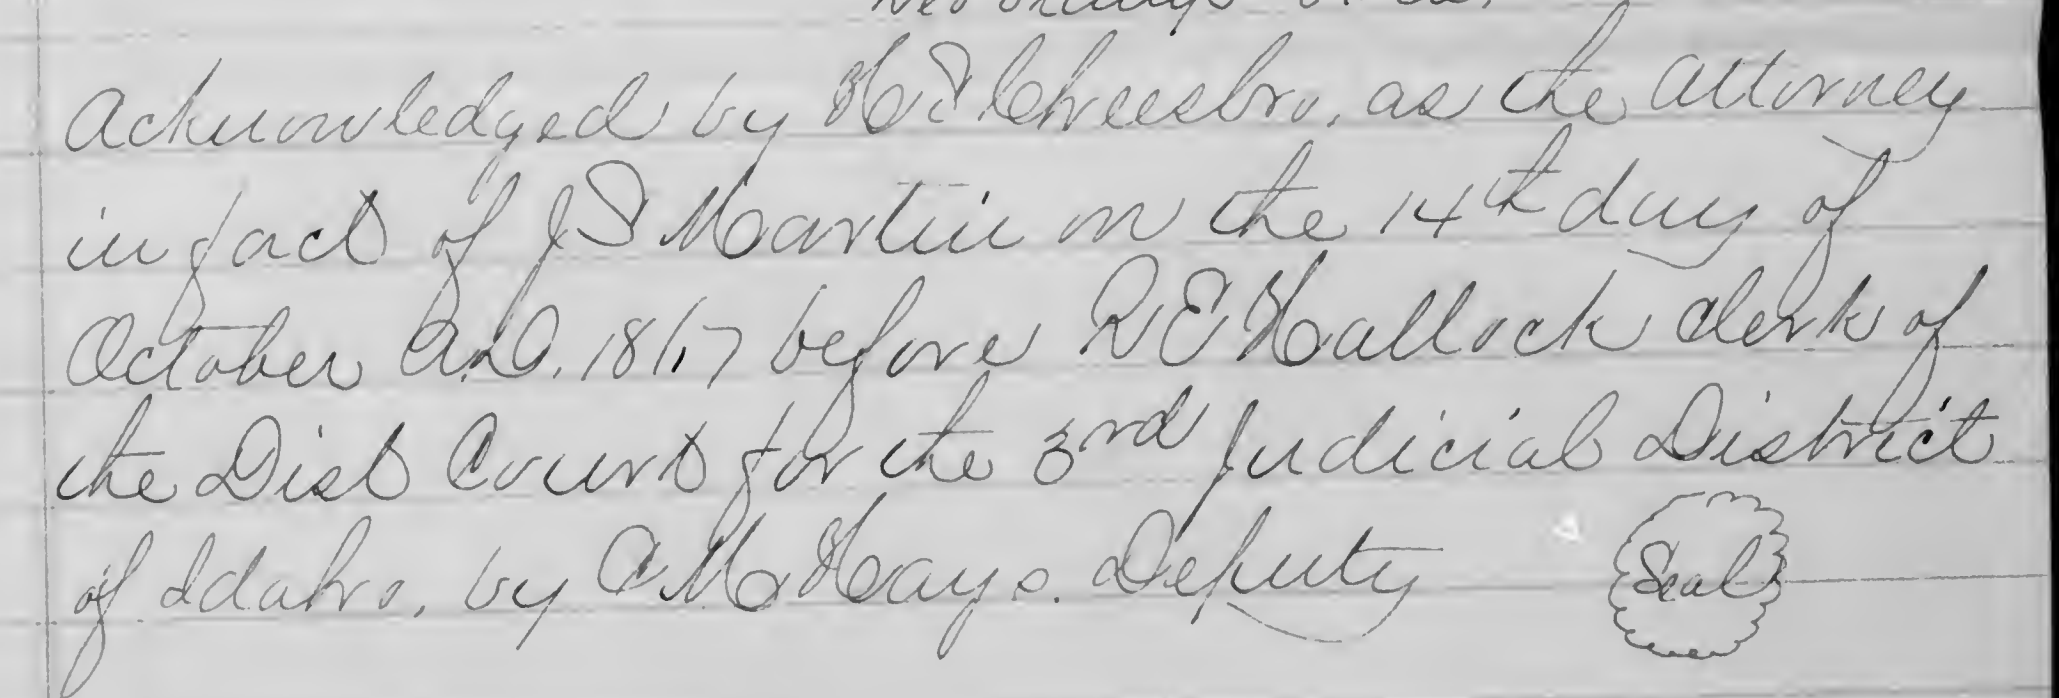 Acknowledged by H S Cheesbro, as the Attorney
in fact of J S Martin on the 14th day of
October A.D. 1867 before R E Hallock Clerk of
the Dist Court for the 3rd Judicial District
of Idaho, by C M Hays. Deputy
Seal